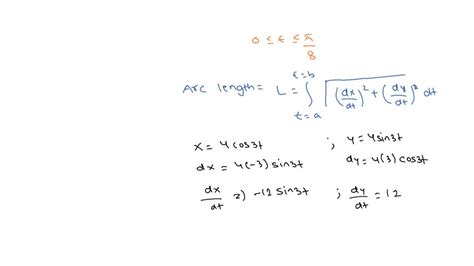 0 ≤ t ≤ π/8
Arc length = L = ∫_{t=a}^{t=b} √((dx/dt)² + (dy/dt)²) dt
x = 4 cos3t ; y = 4 sin3t
dx = 4(-3) sin3t dy = 4(3) cos3t
dx/dt => -12 sin3t ; dy/dt = 12